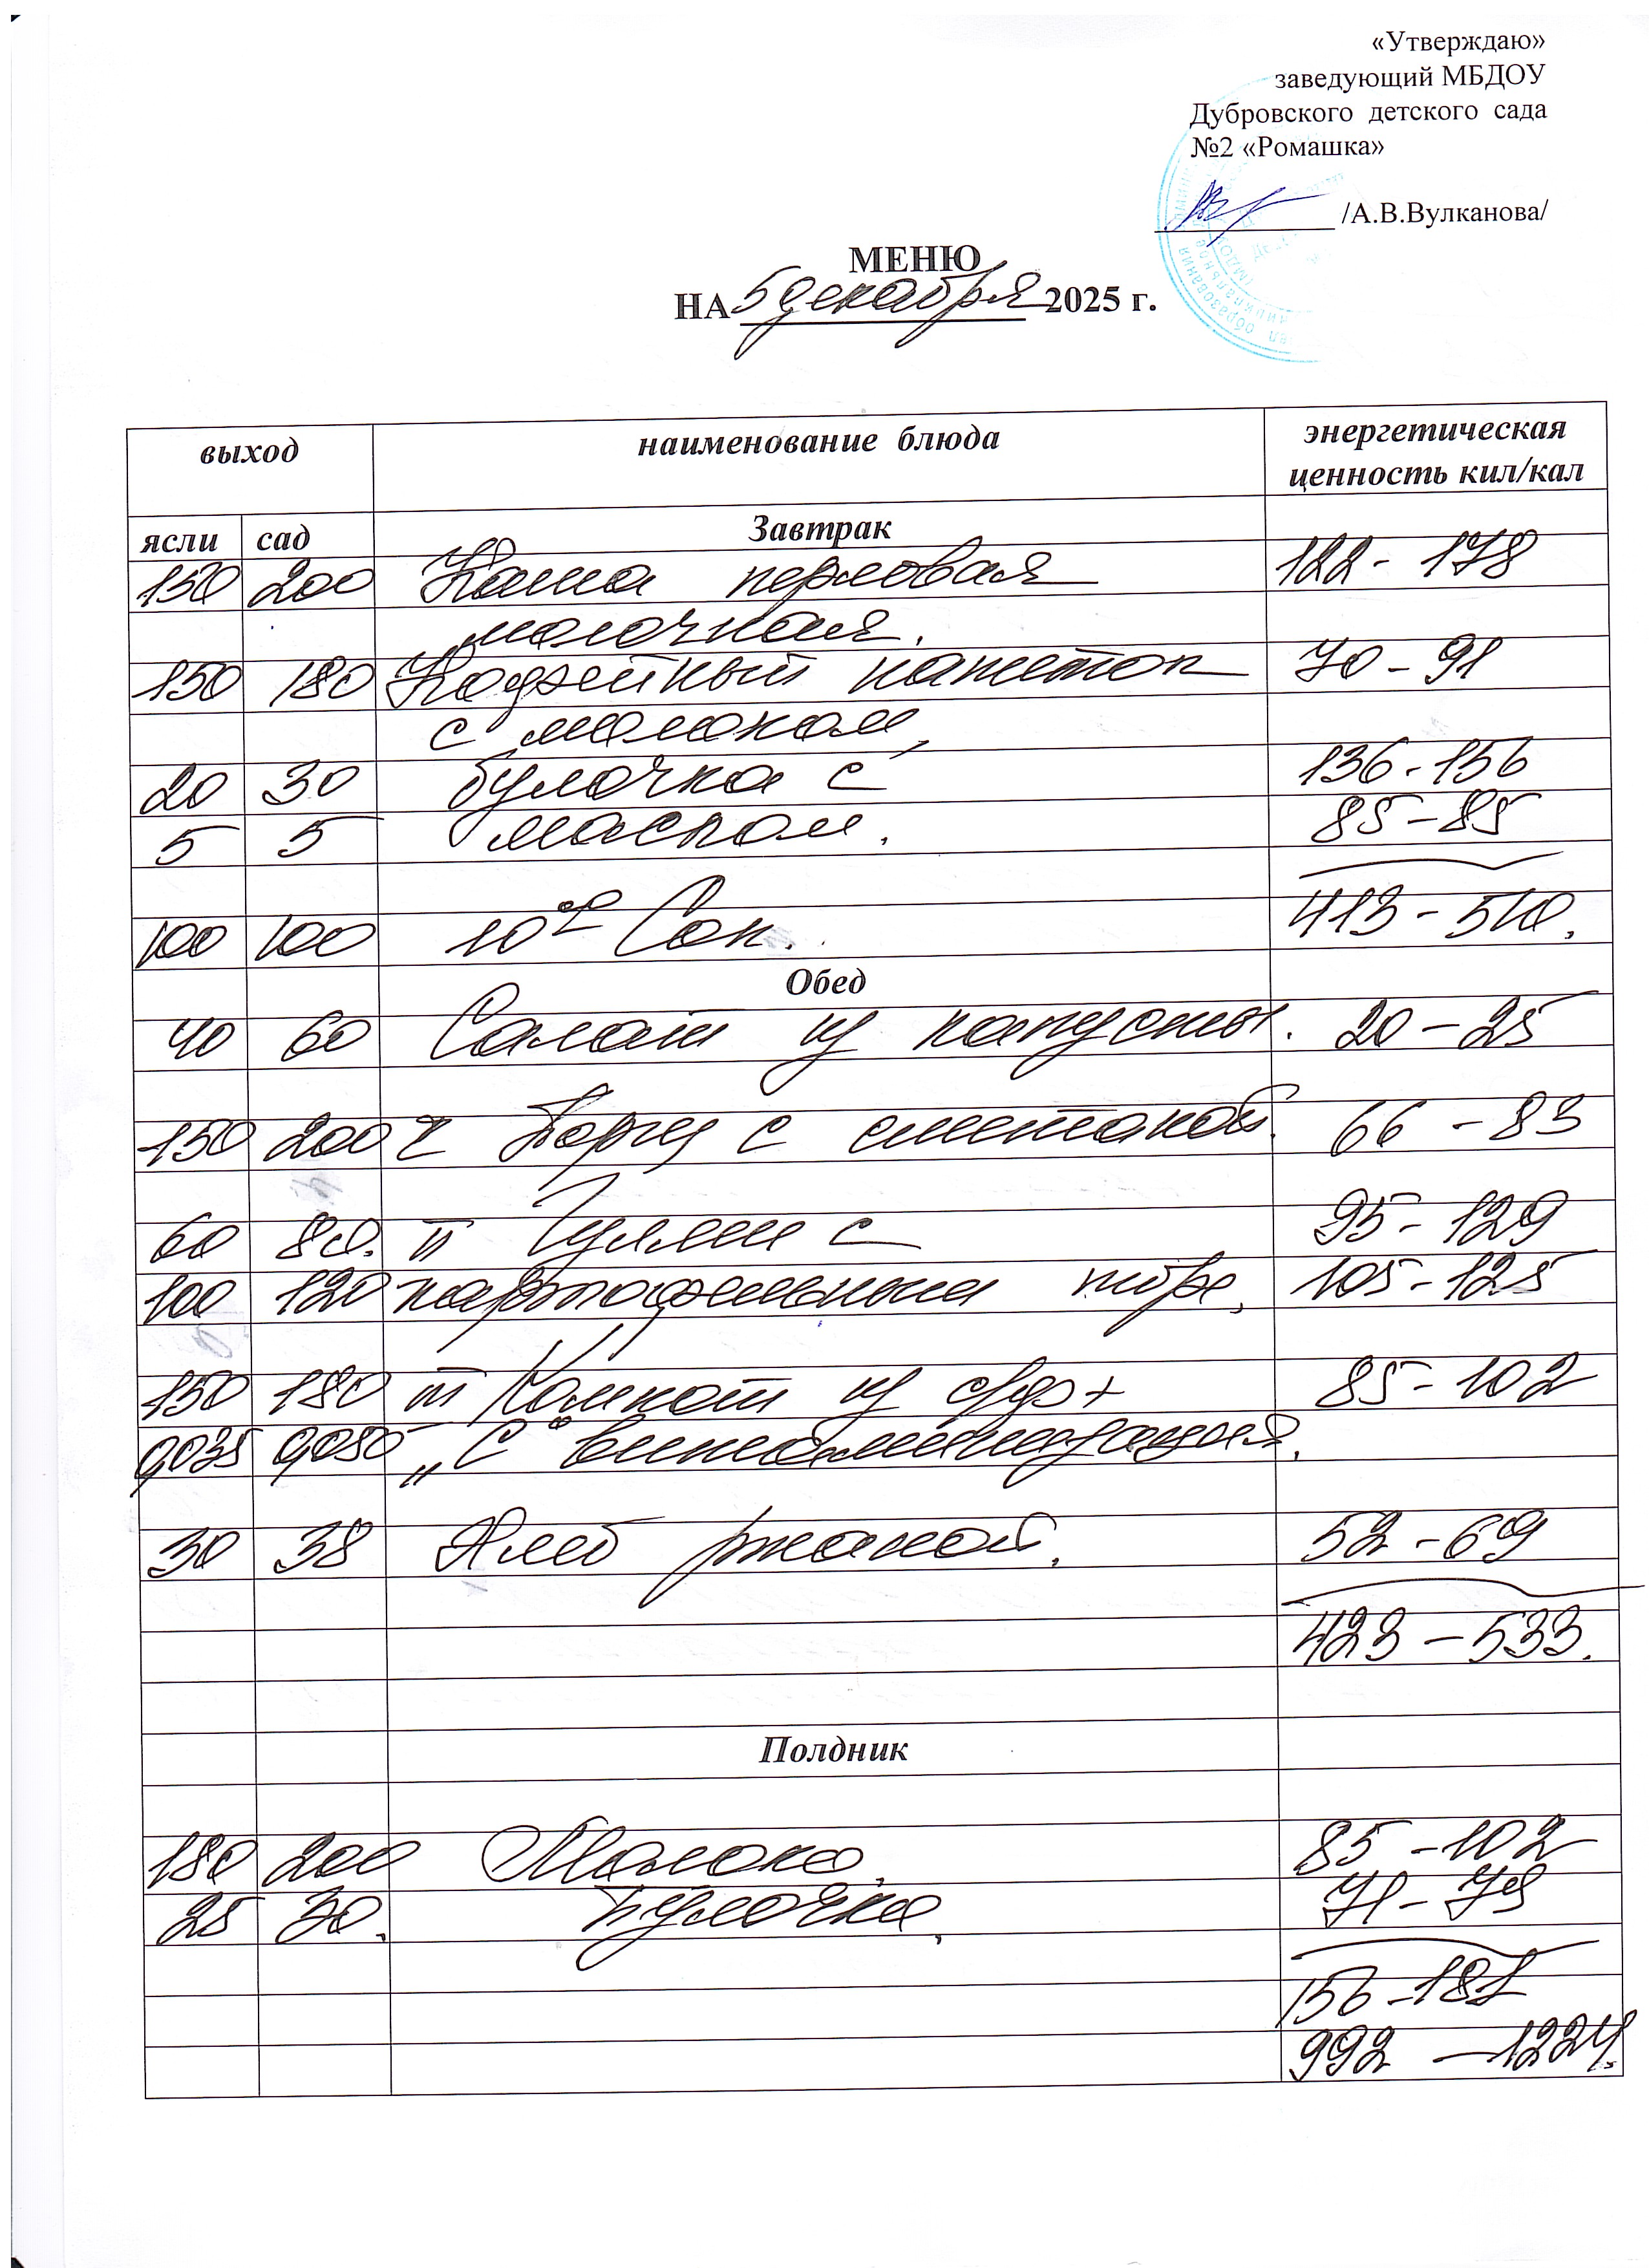 «Утверждаю»
заведующий МБДОУ
Дубровского детского сада
№2 «Ромашка»
/А.В.Вулканова/
МЕНЮ
НА 5 декабря 2025 г.
выход наименование блюда энергетическая ценность кил/кал
ясли сад Завтрак
150 200 Каша перловая 122 - 178
молочная.
150 180 Кофейный напиток 70 - 91
с молоком,
20 30 булочка с 136 - 156
5 5 маслом. 85 - 85
413 - 510.
100 100 10°° Сок.
Обед
40 60 Салат из капусты. 20 - 25
150 200 I Борщ с сметаной. 66 - 83
60 80. II Гуляш с 95 - 129
100 120 картофельным пюре, 105 - 125
150 180 III Компот из с/ф + 85 - 102
0,035 0,050 „С" витаминизация.
30 38 Хлеб ржаной. 52 - 69
423 - 533.
Полдник
180 200 Молоко, 85 - 102
25 30. Булочка, 71 - 79
156 - 181
992 - 1224.